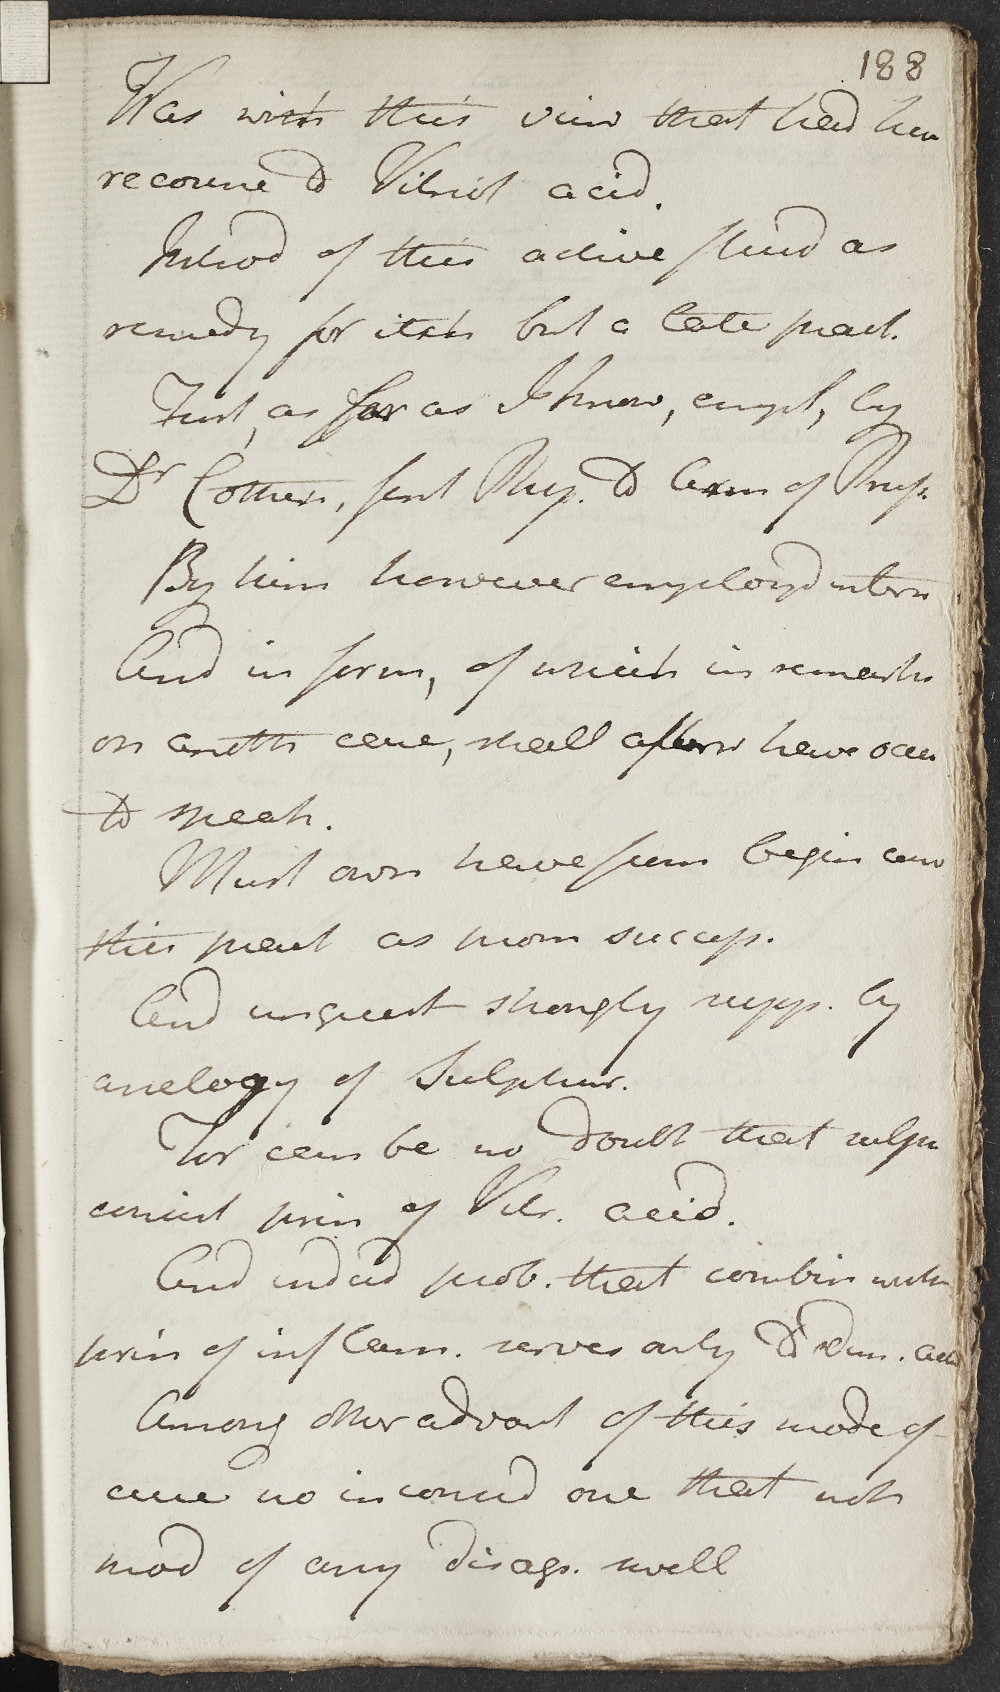 188
Was with this view that had here
recourse to Vitriol acid.
Introd of this active fluid as
remedy for itch but a late pract.
First, as far as I know, empl, by
Dr Cothen, first Phys. to of Pruss.
By him however employd intern
And in form, of which in remarks
on anoth case, shall afterw have occas
to speak.
Must own have from begin cons
this pract as prom success.
And unquest strongly supp. by
analogy of Sulphur.
For can be no doubt that sulph
consist prin of Vitr. acid.
And indeed prob. that combin with
prin of inflam. serves only to dim. acid
Among other advant of this mode of
cure no inconsid one that not
mod of any disag. smell